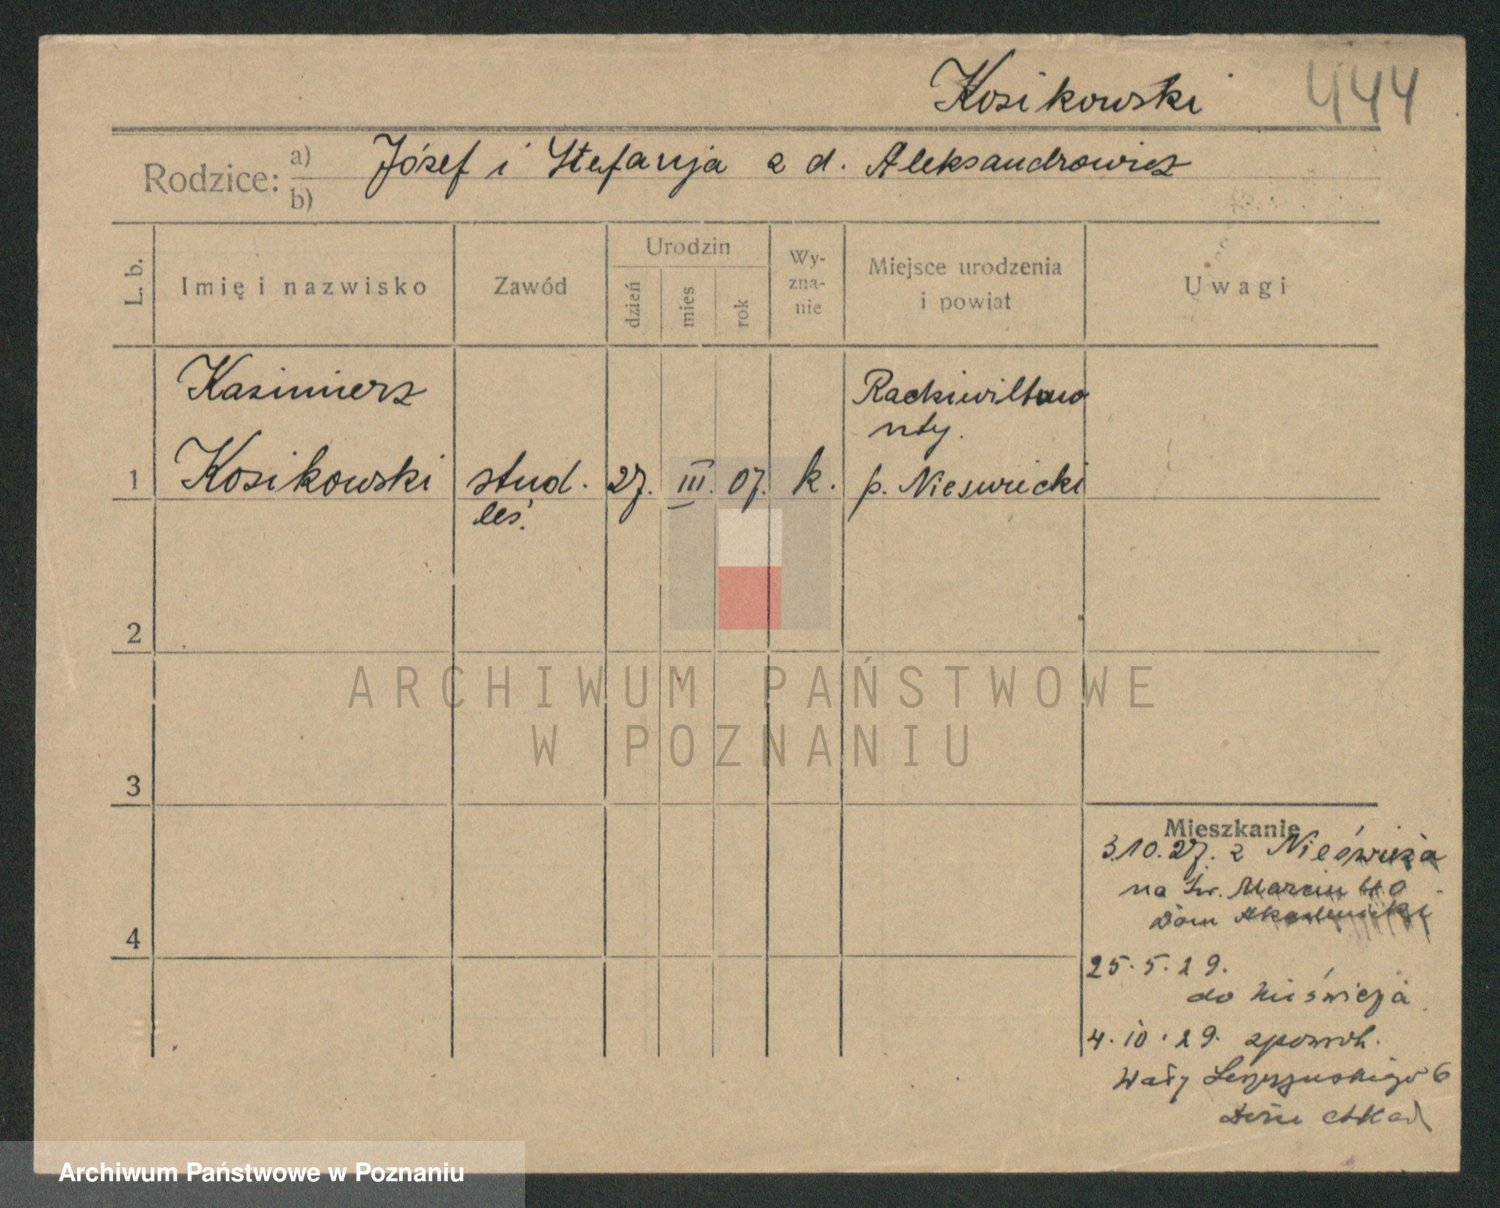 Kosikowski 444
Rodzice: a) Józef i Stefanja z d. Aleksandrowicz
b)
L. b.
Imię i nazwisko
Zawód
Urodzin
dzień
mies
rok
Wy-
zna-
nie
Miejsce urodzenia
i powiat
Uwagi
Kazimierz
Kosikowski
1
stud.
leś.
27. III. 07.
k.
p. Nieswiecki
2
3
4
ARCHIWUM PAŃSTWOWE
W POZNANIU
Mieszkanie
3.10.27. z Nieświeża
na św. Marcin 40
Dom Akademicki
25.5.29.
do Nieświeża
4.10.29. zpowrot.
Wały Leszczyńskiego 6
Dom Akad
Archiwum Państwowe w Poznaniu